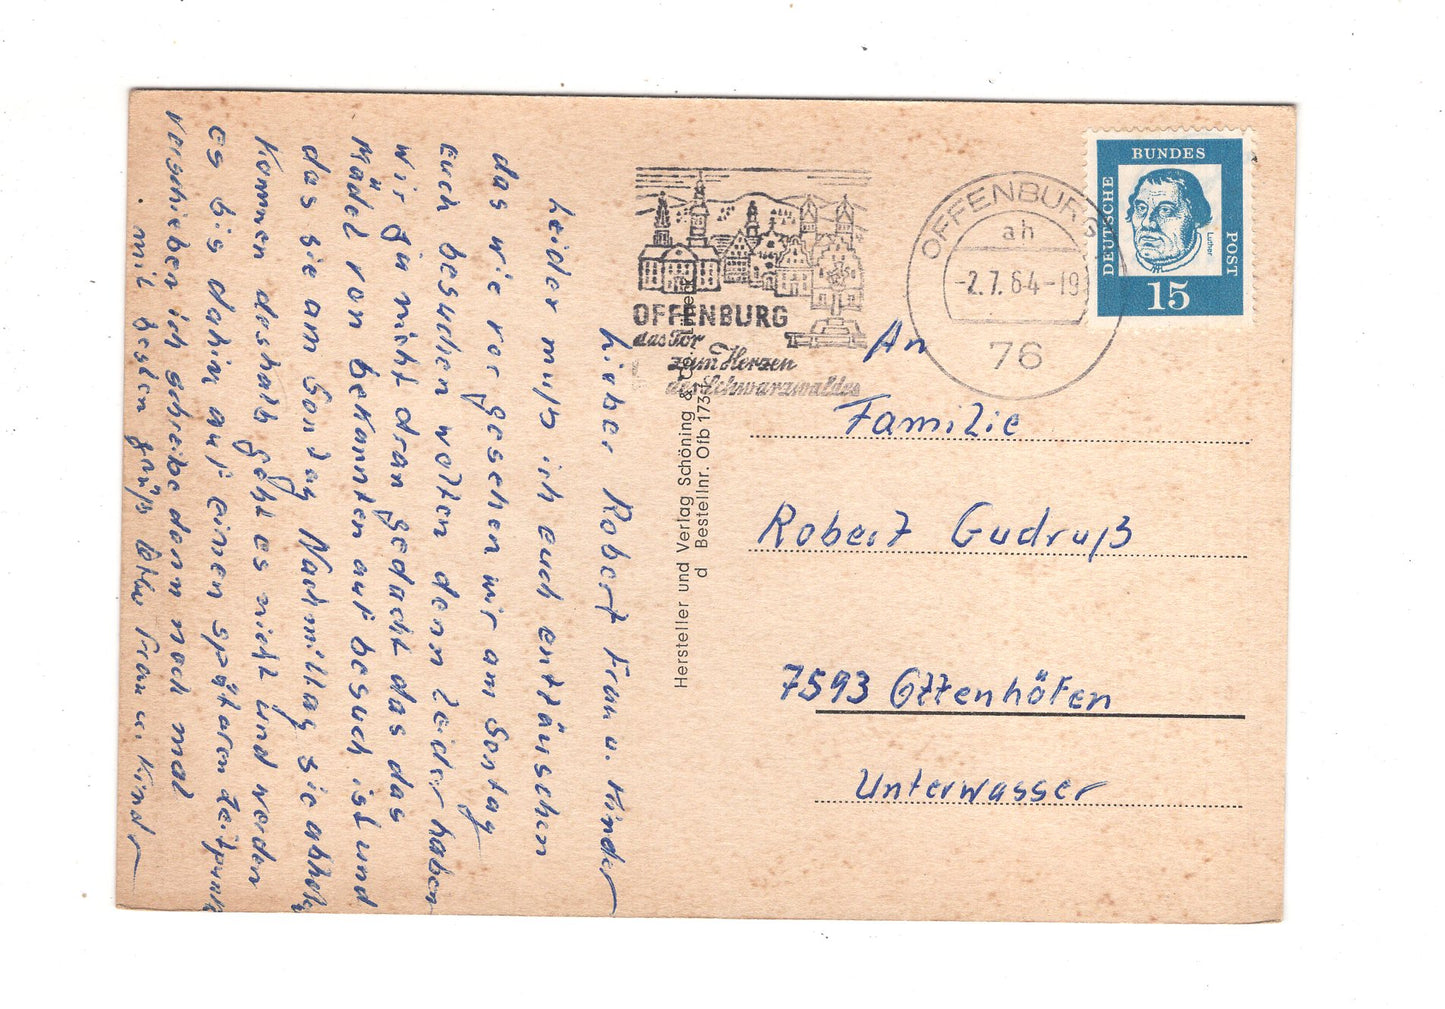 Lieber Robert Frau u. Kinder
Leider muß ich euch enttäuschen
das wie vorgesehen wir am Sontag
Euch besuchen wolten denn leider haben
wir ja nicht dran gedacht das das
Mädel von bekannten auf besuch ist und
das sie am Sontag Nachmittag sie abholen
Kommen deshalb geht es nicht und werden
es bis dahin auf einen spätaren Zeitpunkt
verschieben ich schreibe dann noch mal
mit besten grüß Frau u Kinder
Hersteller und Verlag Schöning & Co.
d Bestellnr. Ofb 173
OFFENBURG
das Tor
zum Herzen
des Schwarzwaldes
OFFENBURG
ah
-2.7.64-19
76
DEUTSCHE
BUNDES
POST
Luther
15
An
Familie
Robert Gudruß
7593 Ottenhöfen
Unterwasser